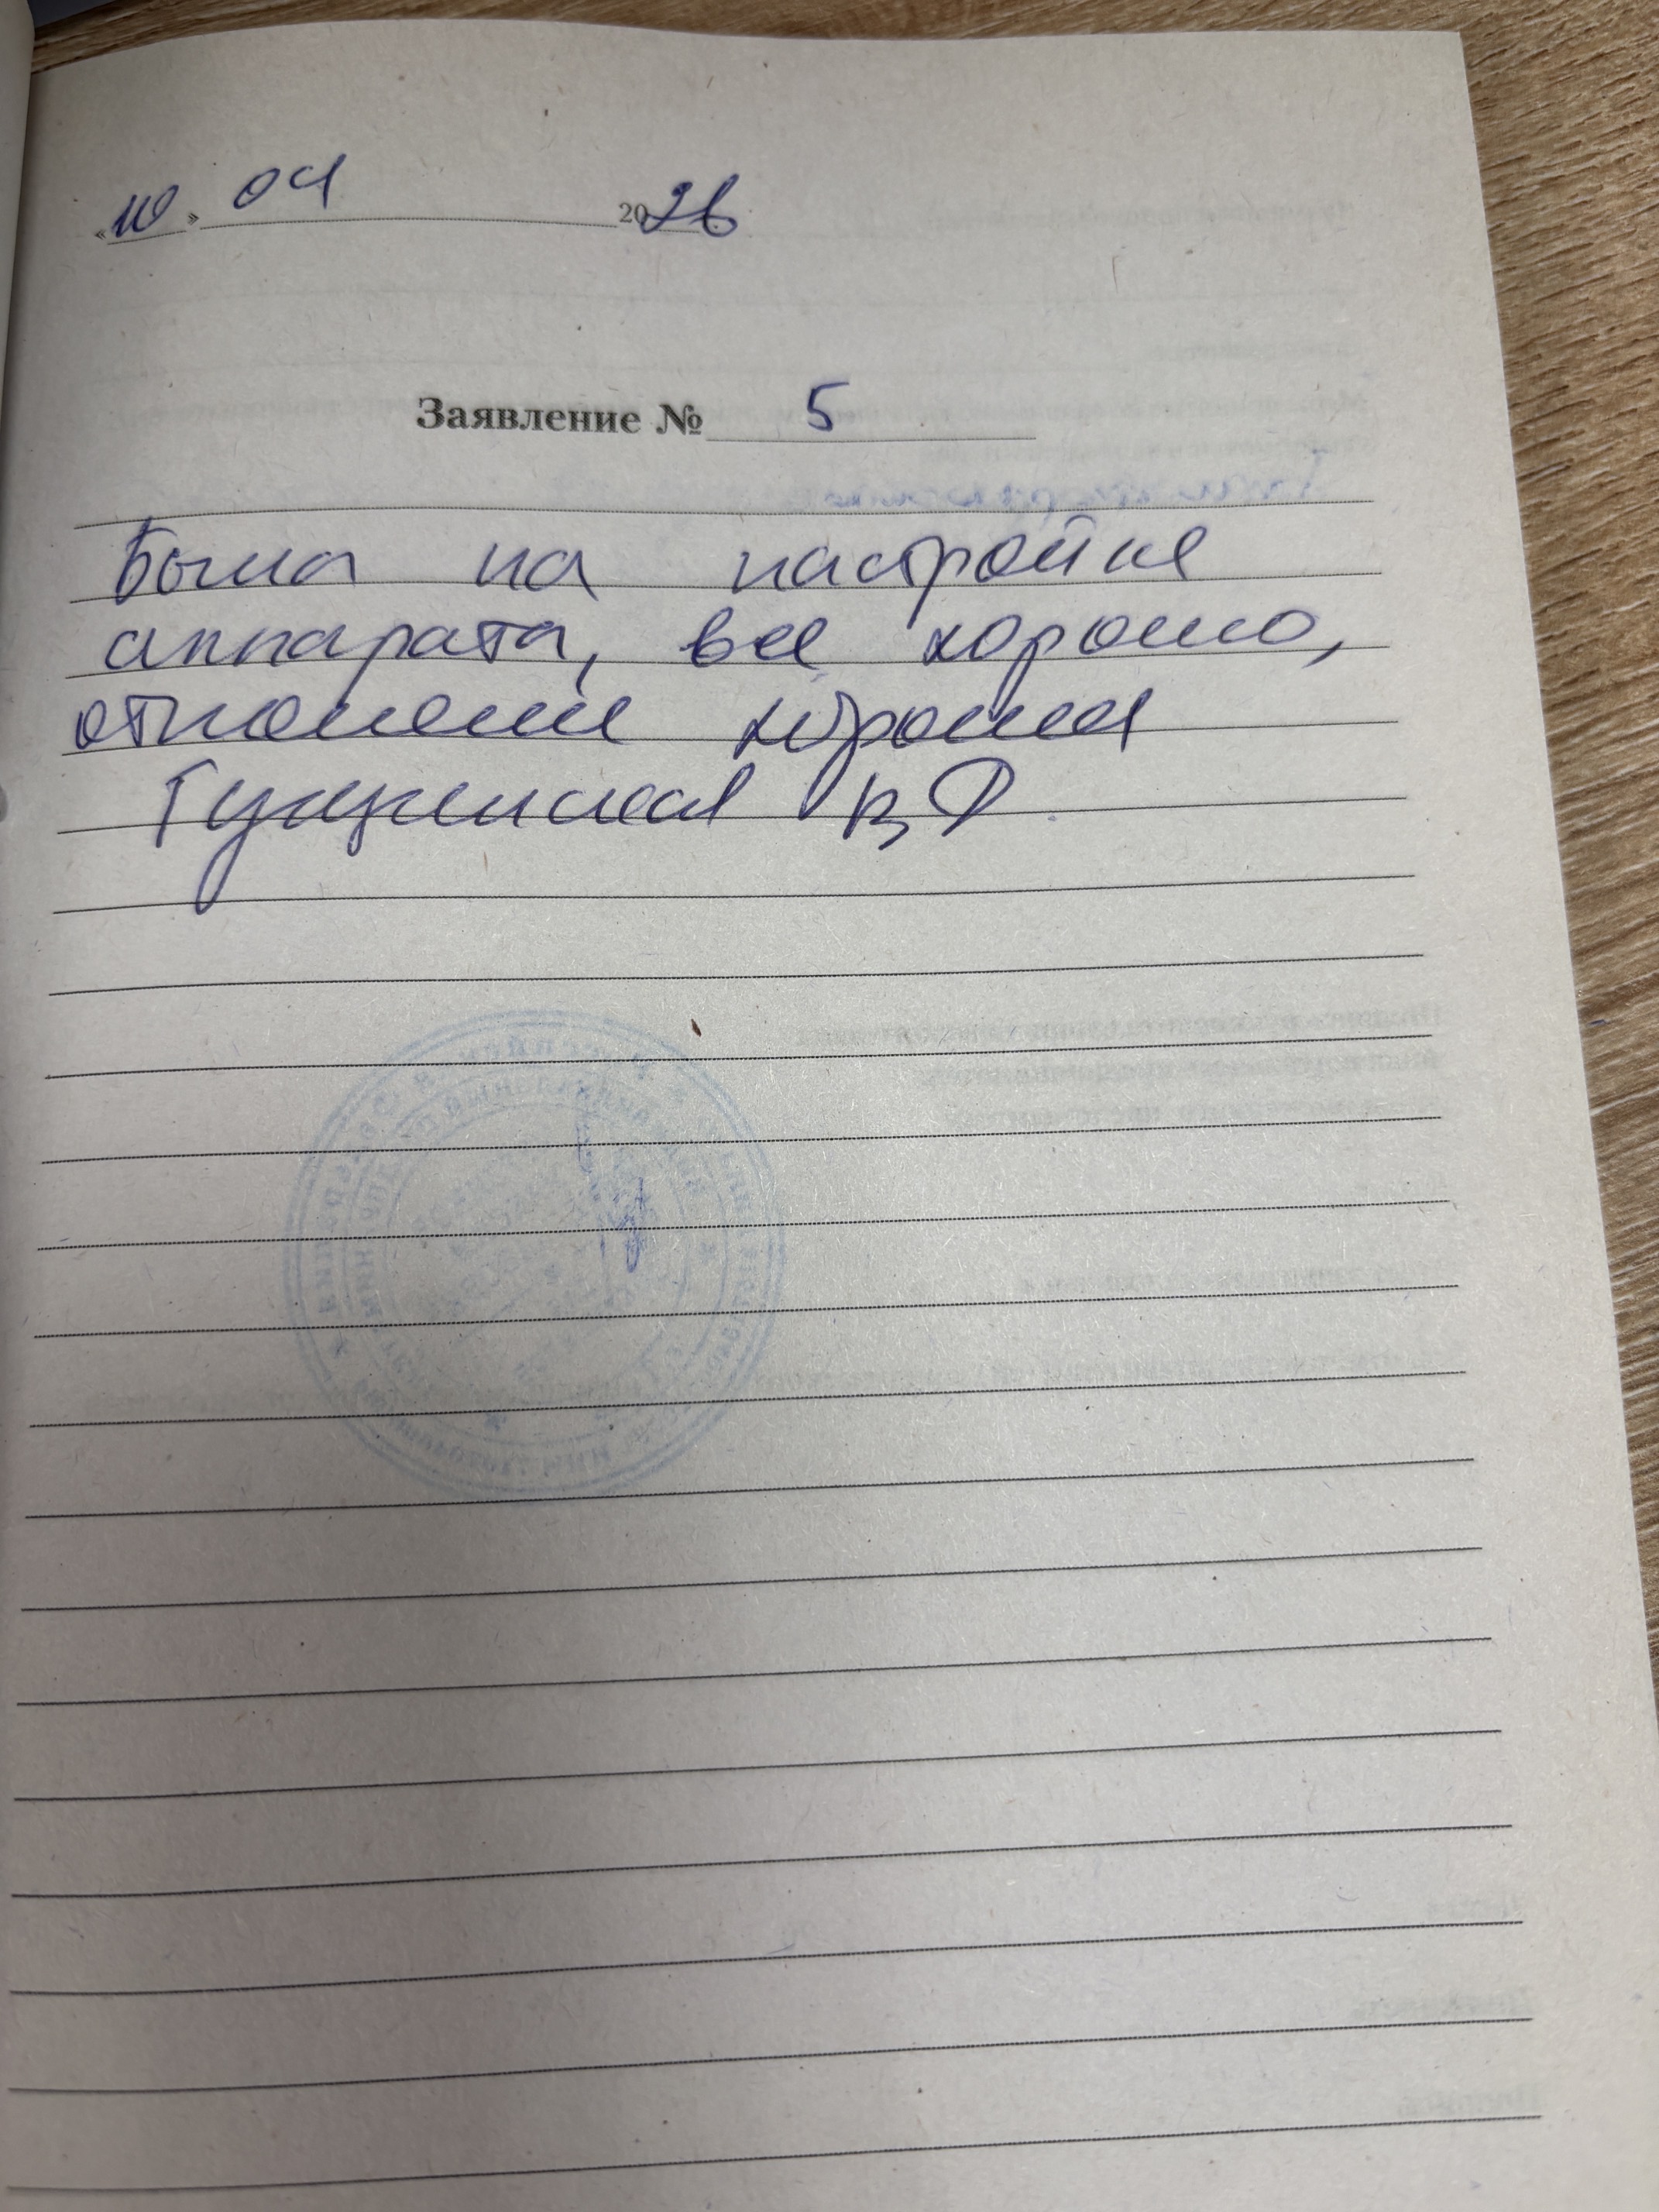 «10» 04 2026
Заявление № 5
Была на настройке
аппарата, все хорошо,
отношение хорошее
В Ф